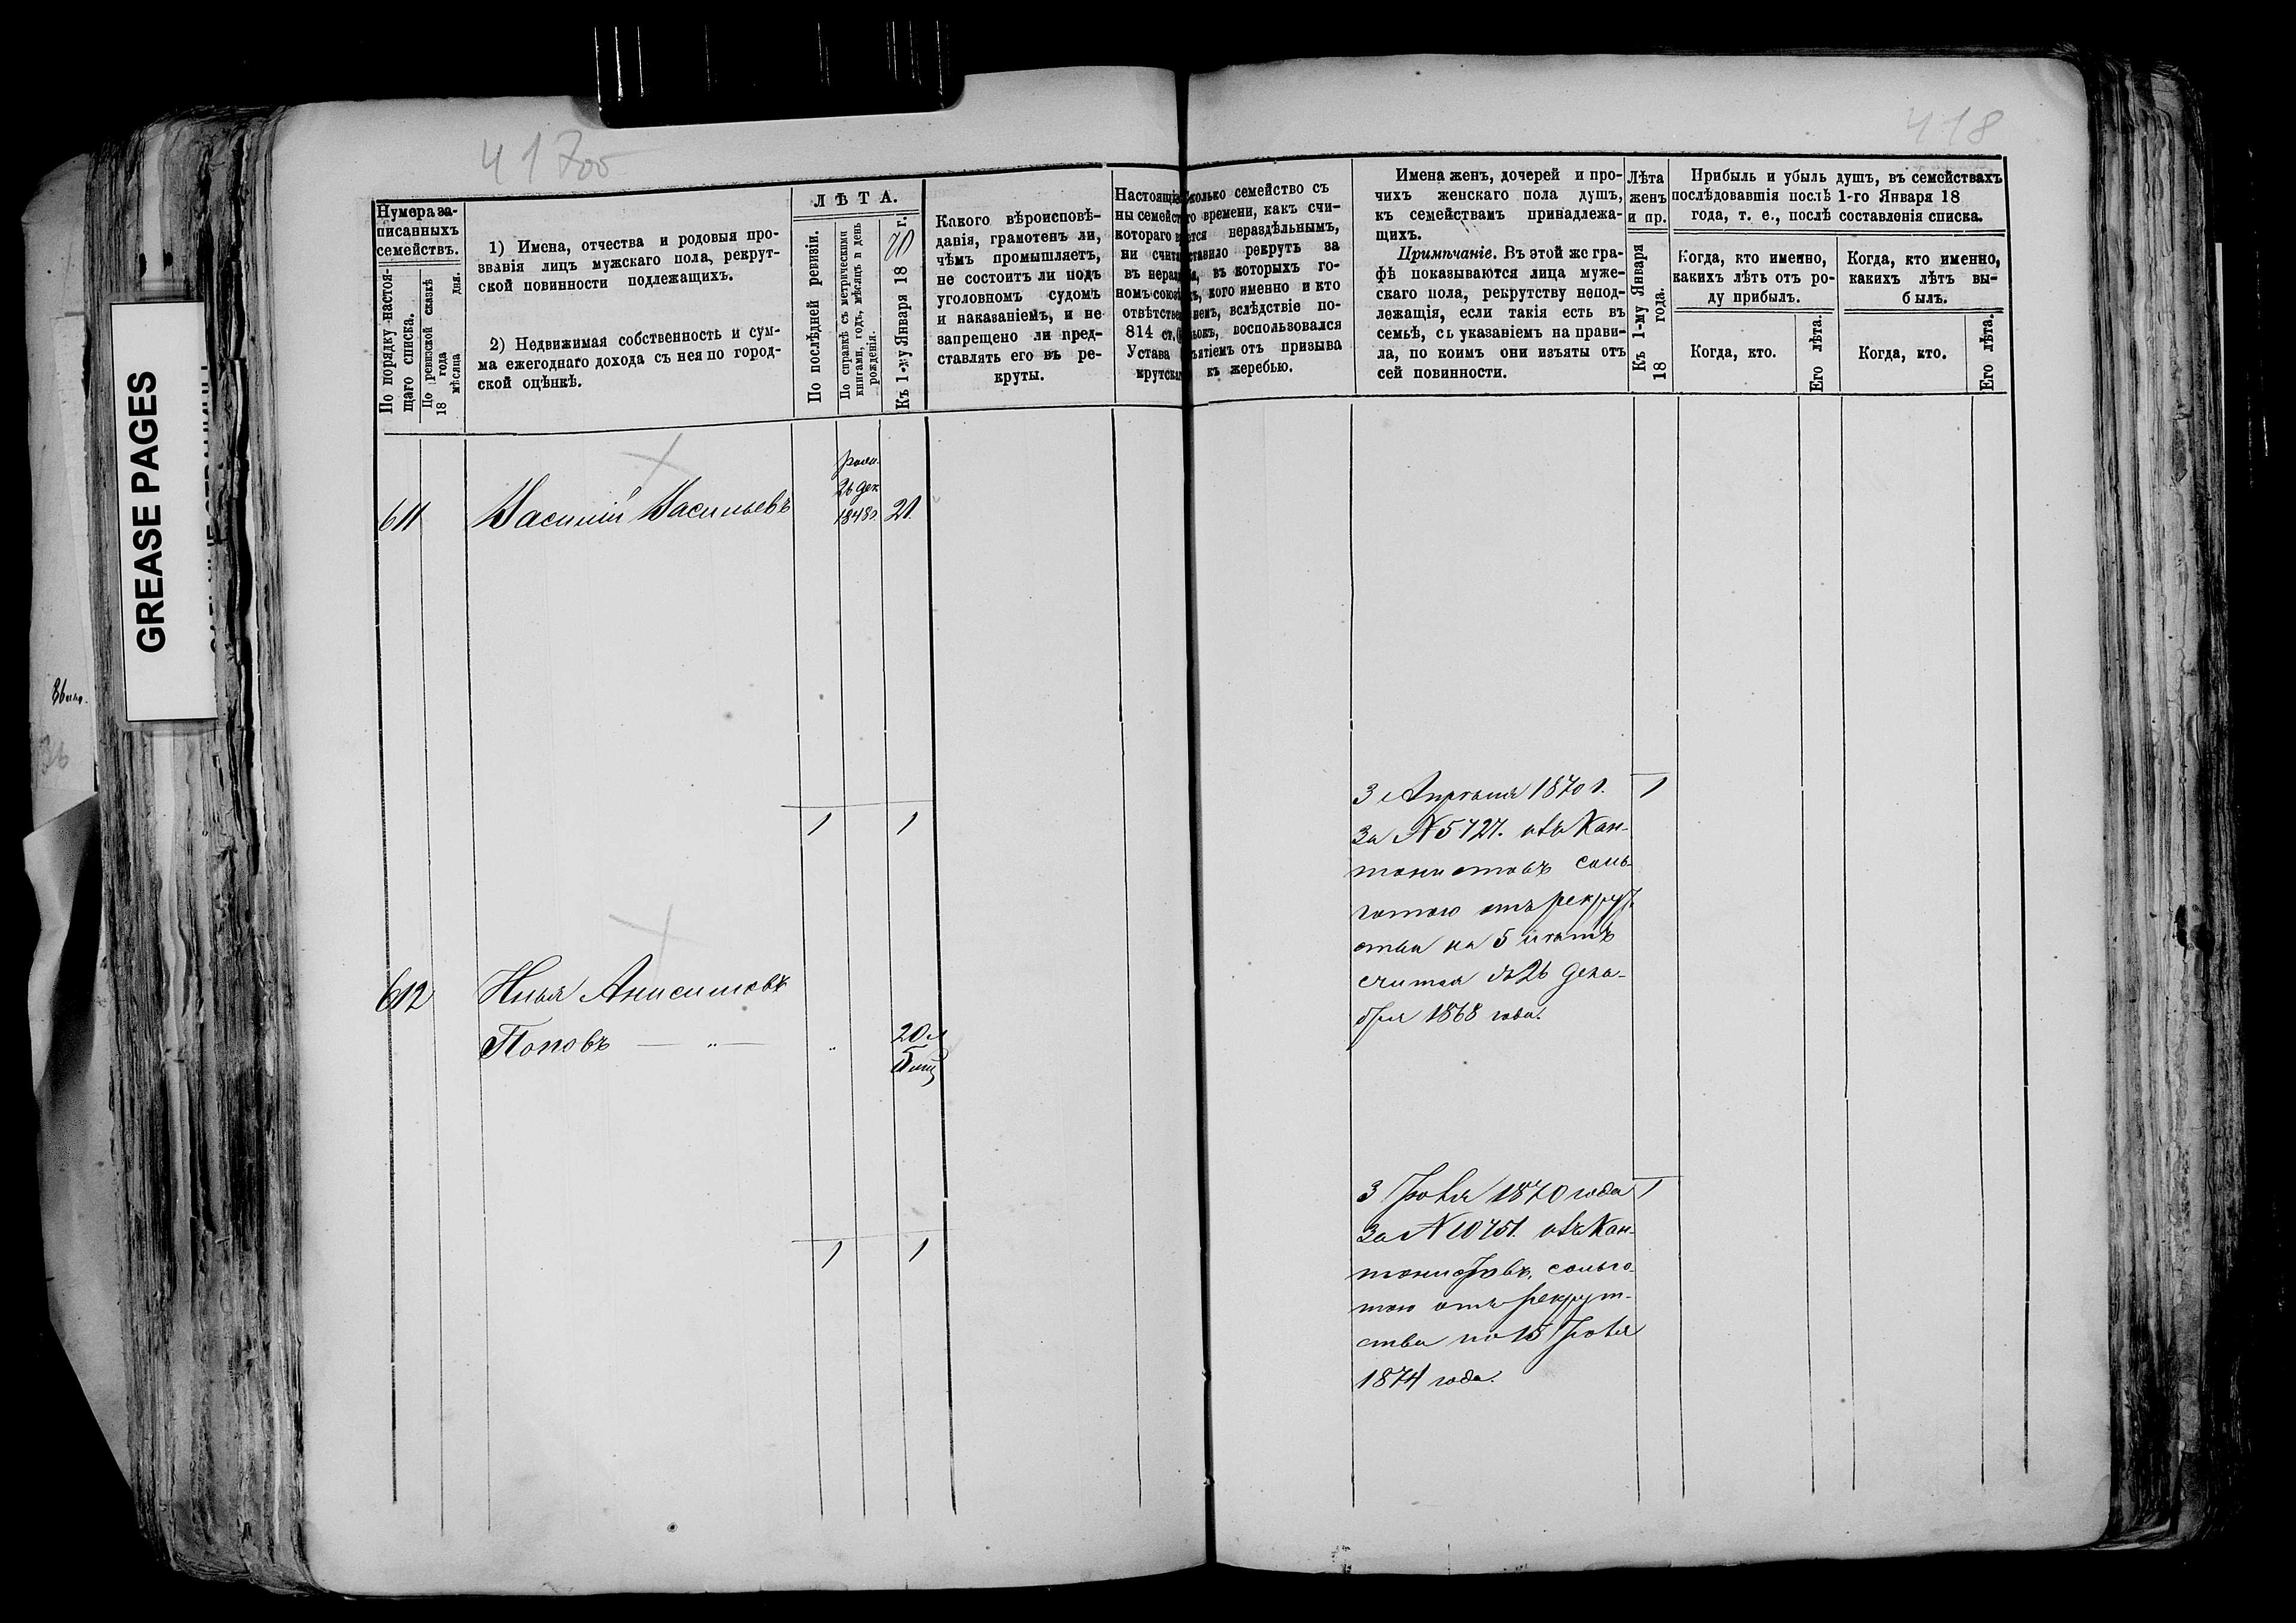 417об
418
GREASE PAGES
Нумера за-
писанныхъ
семействъ.
По порядку настоя-
щаго списка.
По ревизской сказкѣ
18 года
мѣсяца дня.
1) Имена, отчества и родовыя про-
званія лицъ мужскаго пола, рекрут-
ской повинности подлежащихъ.
2) Недвижимая собственность и сум-
ма ежегоднаго дохода съ нея по город-
ской оцѣнкѣ.
ЛѢТА.
По послѣдней ревизіи.
По справкѣ съ метрическими
книгами, годъ, мѣсяцъ и день
рожденія.
Къ 1-му Января 1870 г.
Какого вѣроисповѣ-
данія, грамотенъ ли,
чѣмъ промышляетъ,
не состоитъ ли подъ
уголовномъ судомъ
и наказаніемъ, и не
запрещено ли пред-
ставлять его въ ре-
круты.
Настоящі
ны семейст
котораго
ни счита
въ нераз
номъ союз
отвѣтстве
814 ст.
Устава
крутска
колько семейство съ
го времени, какъ счи-
ется нераздѣльнымъ,
ставило рекрутъ за
въ которыхъ го-
кого именно и кто
вслѣдствіе по-
воспользовался
ъятіемъ отъ призыва
къ жеребью.
Имена женъ, дочерей и про-
чихъ женскаго пола душъ,
къ семействамъ принадлежа-
щихъ.
Примѣчаніе. Въ этой же гра-
фѣ показываются лица муже-
скаго пола, рекрутству непод-
лежащія, если такія есть въ
семьѣ, съ указаніемъ на прави-
ла, по коимъ они изъяты отъ
сей повинности.
Лѣта
женъ
и пр.
Къ 1-му Января
18 года.
Прибыль и убыль душъ, въ семействахъ
послѣдовавшія послѣ 1-го Января 18
года, т. е., послѣ составленія списка.
Когда, кто именно,
какихъ лѣтъ отъ ро-
ду прибылъ.
Когда, кто.
Его лѣта.
Когда, кто именно,
какихъ лѣтъ вы-
былъ.
Когда, кто.
Его лѣта.
611 Василій Васильевъ
26 дек
1848г. 21.
1 1
3 Апрѣля 1870 г. 1
За № 5727. изъ Кан-
тонистовъ съ ль-
готою отъ рекрут-
ства на 5 лѣтъ
считая съ 26 дека-
бря 1868 года.
612 Илья Анисимовъ
Поповъ — „ — „ 20 л
5 мц
1 1
3 Іюля 1870 года 1
За № 10751. изъ Кан-
тонистовъ, съ льго-
тою отъ рекрут-
ства по 15 Іюля
1874 года.